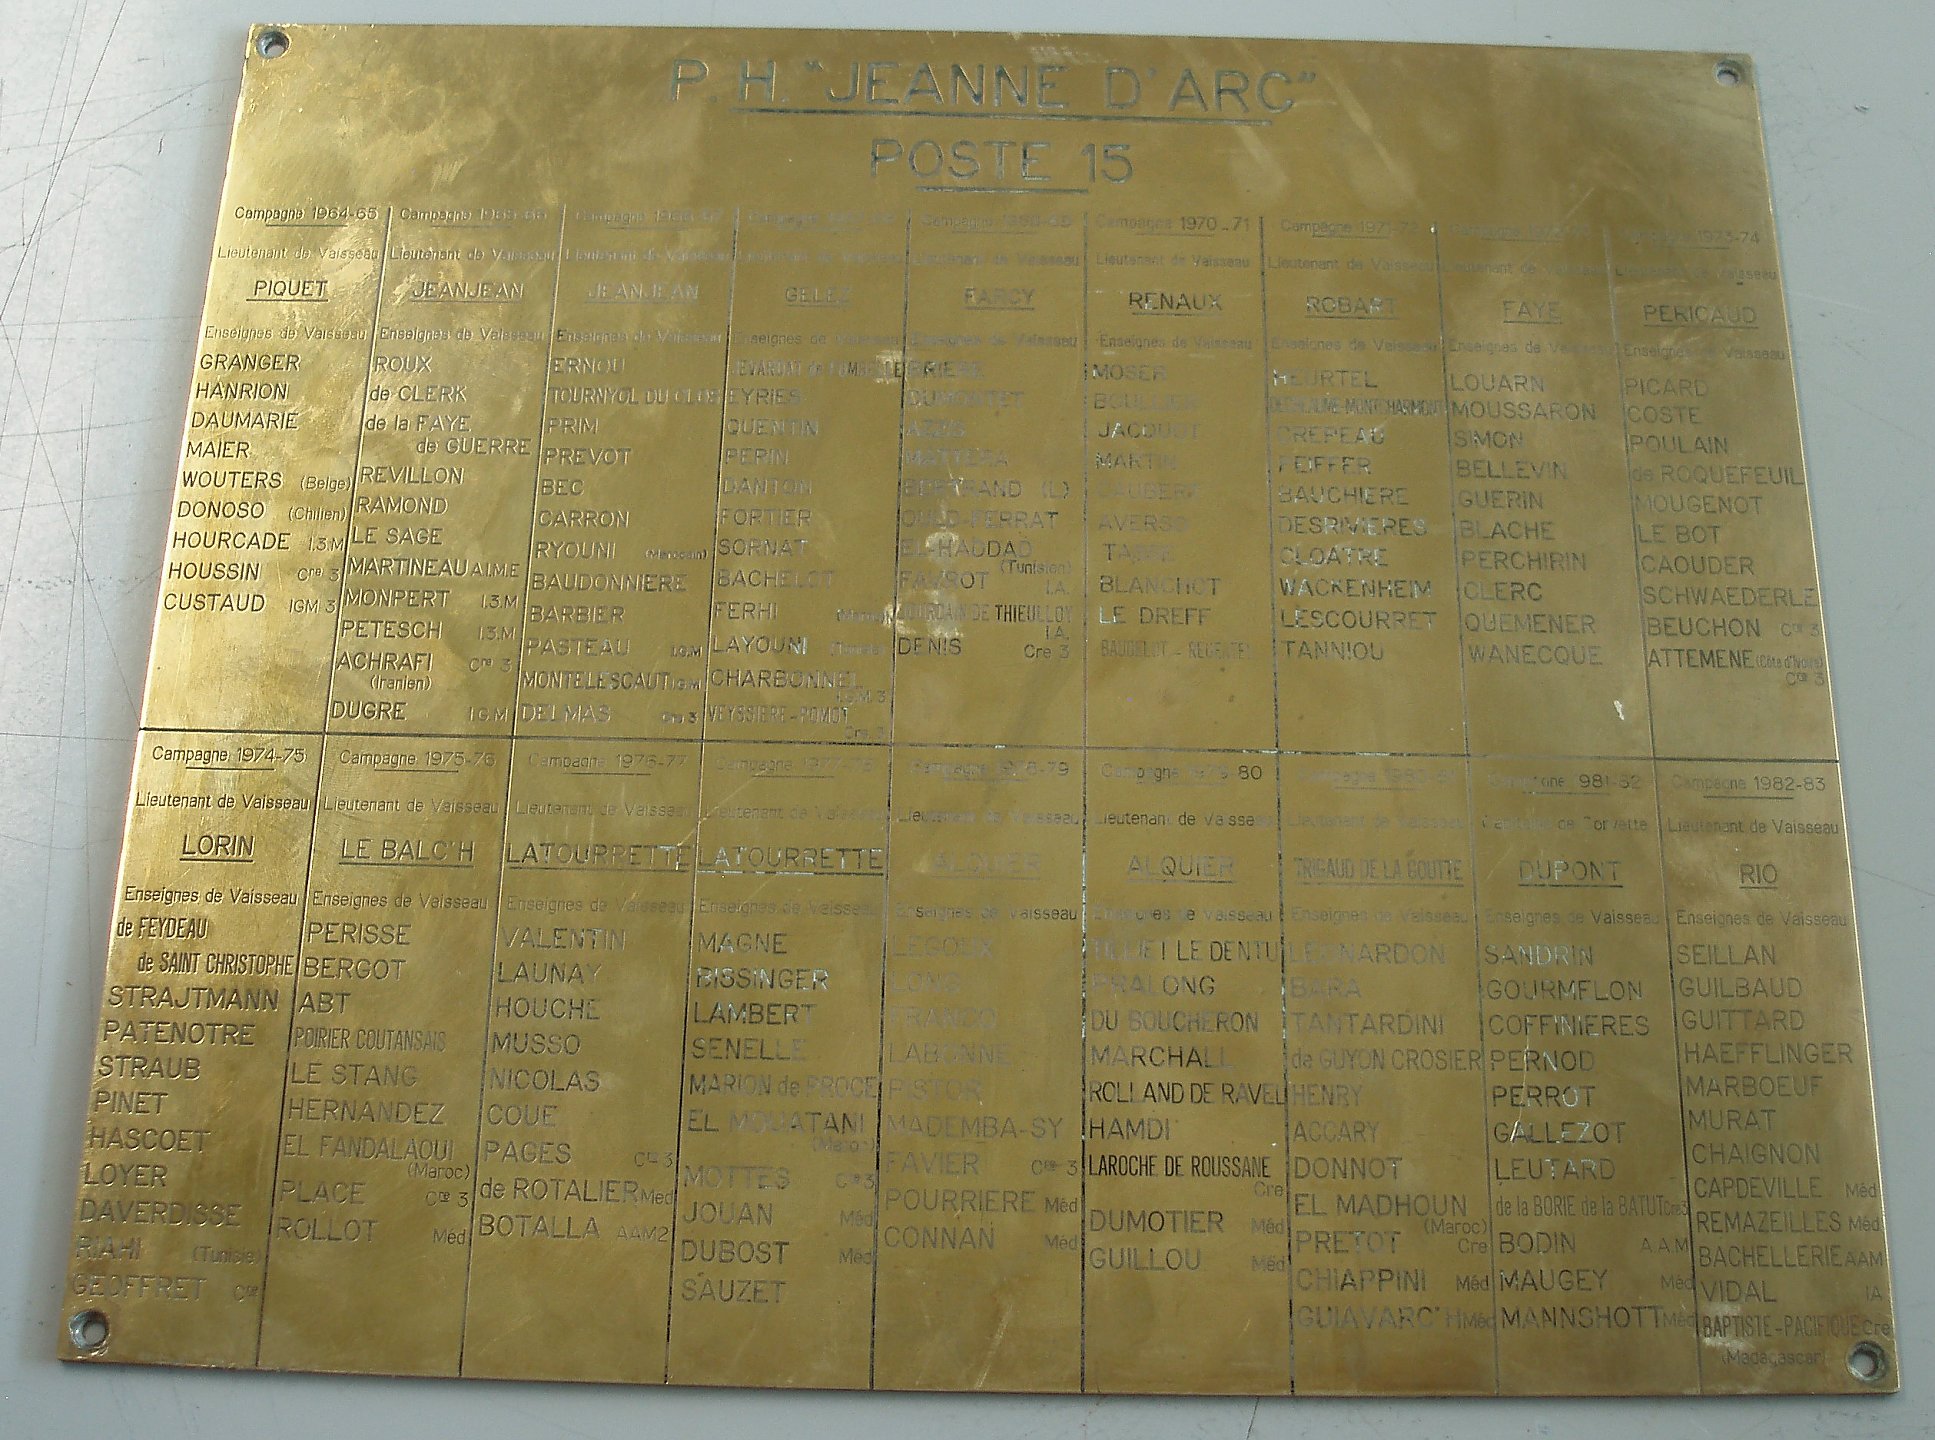 P.H. "JEANNE D'ARC"
POSTE 15
Campagne 1964-65
Lieutenant de Vaisseau
PIQUET
Enseignes de Vaisseau
GRANGER
HANRION
DAUMARIE
MAIER
WOUTERS (Belge)
DONOSO (Chilien)
HOURCADE I.3.M
HOUSSIN Cre 3
CUSTAUD IGM 3
Campagne 1965-66
Lieutenant de Vaisseau
JEANJEAN
Enseignes de Vaisseau
ROUX
de CLERK
de la FAYE
de GUERRE
REVILLON
RAMOND
LE SAGE
MARTINEAU A.I.M.E
MONPERT I.3.M
PETESCH I.3.M
ACHRAFI Cre 3
(Iranien)
DUGRE I.G.M
Campagne 1966-67
Lieutenant de Vaisseau
JEANJEAN
Enseignes de Vaisseau
ERNOU
TOURNYOL DU CLOS
PRIM
PREVOT
BEC
CARRON
RYOUNI (Marocain)
BAUDONNIERE
BARBIER
PASTEAU I.G.M
MONTELESCAUT I.G.M
DELMAS Cre 3
Campagne
Lieutenant de Vaisseau
GELEZ
Enseignes de Vaisseau
EYRIES
QUENTIN
PERIN
DANTON
FORTIER
SORNAT
BACHELOT
FERHI
LAYOUNI
CHARBONNEL
I.G.M 3
VEYSSIERE-POMOT
Cre 3
Campagne
Lieutenant de Vaisseau
FARCY
Enseignes de Vaisseau
DUMONTET
AZES
MATTERA
BERTRAND (L)
OULD-FERRAT
EL-HADDAD
(Tunisien)
FAVROT I.A.
JOURDAIN DE THIEULLOY
I.A.
DENIS Cre 3
Campagne 1970-71
Lieutenant de Vaisseau
RENAUX
Enseignes de Vaisseau
MOSER
BOULLIER
JACQUOT
MARTIN
AVERSO
BLANCHOT
LE DREFF
Campagne 1971-72
Lieutenant de Vaisseau
ROBART
Enseignes de Vaisseau
HEURTEL
CREPEAU
PEIFFER
BAUCHIERE
DESRIVIERES
CLOATRE
WACKENHEIM
LESCOURRET
TANNIOU
Campagne
Lieutenant de Vaisseau
FAYE
Enseignes de Vaisseau
LOUARN
MOUSSARON
SIMON
BELLEVIN
GUERIN
BLACHE
PERCHIRIN
CLERC
QUEMENER
WANECQUE
Campagne 1973-74
Lieutenant de Vaisseau
PERICAUD
Enseignes de Vaisseau
PICARD
COSTE
POULAIN
de ROQUEFEUIL
MOUGENOT
LE BOT
CAOUDER
SCHWAEDERLE
BEUCHON Cre 3
ATTEMENE (Côte d'Ivoire)
Cre 3
Campagne 1974-75
Lieutenant de Vaisseau
LORIN
Enseignes de Vaisseau
de FEYDEAU
de SAINT CHRISTOPHE
STRAJTMANN
PATENOTRE
STRAUB
PINET
HASCOET
LOYER
DAVERDISSE
RIAHI (Tunisie)
GEOFFRET Cre
Campagne 1975-76
Lieutenant de Vaisseau
LE BALC'H
Enseignes de Vaisseau
PERISSE
BERGOT
ABT
POIRIER COUTANSAIS
LE STANG
HERNANDEZ
EL FANDALAOUI
(Maroc)
PLACE Cre 3
ROLLOT Méd
Campagne 1976-77
Lieutenant de Vaisseau
LATOURRETTE
Enseignes de Vaisseau
VALENTIN
LAUNAY
HOUCHE
MUSSO
NICOLAS
COUE
PAGES Cre 3
de ROTALIER Méd
BOTALLA AAM2
Campagne 1977-78
Lieutenant de Vaisseau
LATOURRETTE
Enseignes de Vaisseau
MAGNE
BISSINGER
LAMBERT
SENELLE
MARION de PROCE
EL MOUATANI
(Maroc)
MOTTES Cre 3
JOUAN Méd
DUBOST Méd
SAUZET
Campagne 1978-79
Lieutenant de Vaisseau
ALQUIER
Enseignes de Vaisseau
LEGOUX
LONG
FRANCO
LABONNE
PISTOR
MADEMBA-SY
FAVIER Cre 3
POURRIERE Méd
CONNAN Méd
Campagne 1979-80
Lieutenant de Vaisseau
ALQUIER
Enseignes de Vaisseau
TILLIET LE DENTU
PRALONG
DU BOUCHERON
MARCHALL
ROLLAND DE RAVEL
HAMDI
LAROCHE DE ROUSSANE
Cre
DUMOTIER Méd
GUILLOU Méd
Campagne 1980-81
Lieutenant de Vaisseau
TRIGAUD DE LA GOUTTE
Enseignes de Vaisseau
LEONARDON
BARA
TANTARDINI
de GUYON CROSIER
HENRY
ACCARY
DONNOT
EL MADHOUN
(Maroc)
PRETOT Cre
CHIAPPINI Méd
GUIAVARC'H Méd
Campagne 1981-82
Capitaine de Corvette
DUPONT
Enseignes de Vaisseau
SANDRIN
GOURMELON
COFFINIERES
PERNOD
PERROT
GALLEZOT
LEUTARD
de la BORIE de la BATUT Cre3
BODIN A.A.M
MAUGEY Méd
MANNSHOTT Méd
Campagne 1982-83
Lieutenant de Vaisseau
RIO
Enseignes de Vaisseau
SEILLAN
GUILBAUD
GUITTARD
HAEFFLINGER
MARBOEUF
MURAT
CHAIGNON
CAPDEVILLE Méd
REMAZEILLES Méd
BACHELLERIE AAM
VIDAL IA
BAPTISTE-PACIFIQUE Cre
(Madagascar)